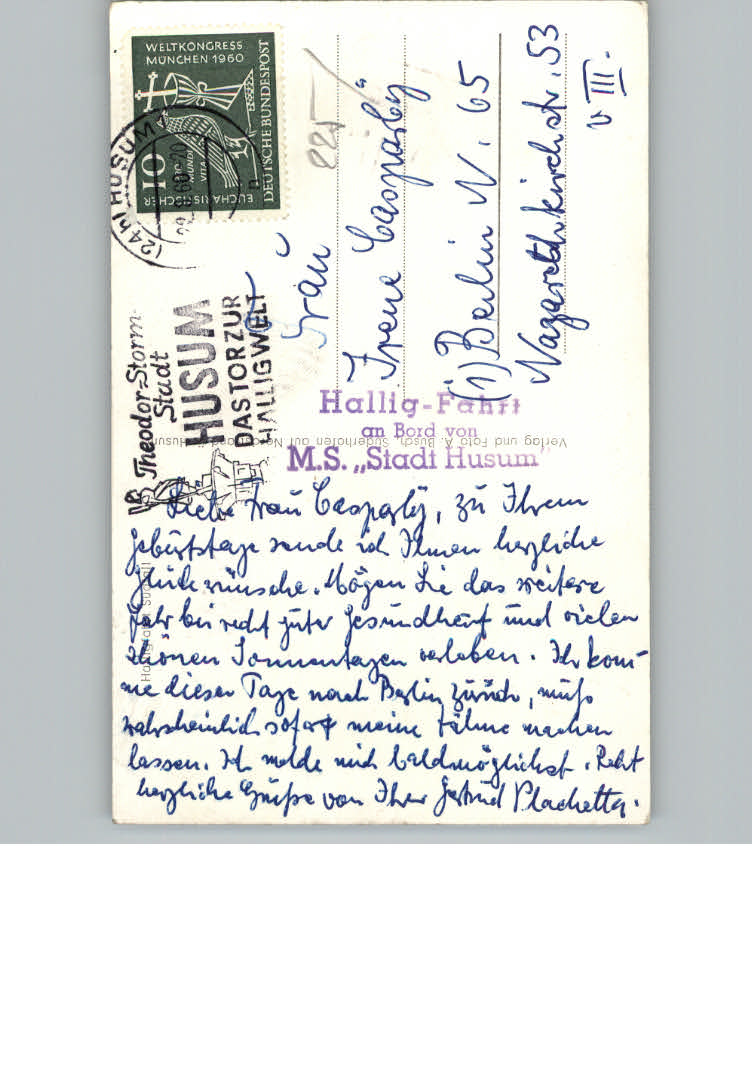 WELTKONGRESS
MÜNCHEN 1960
DEUTSCHE BUNDESPOST
EUCHARISTISCHER
PRO
MUNDI
VITA
10
(24b) HUSUM
Theodor-Storm-
Stadt
HUSUM
DAS TOR ZUR
HALLIGWELT
225
Frau
Irene Casparÿ
(1) Berlin N. 65
Nazarethkirchstr. 53
v III.
Hallig-Fahrt
an Bord von
M.S. „Stadt Husum"
Verlag und Foto A. Busch, Süderhafen auf Nordstrand
Liebe Frau Casparÿ, zu Ihrem
Geburtstage sende ich Ihnen herzliche
Glückwünsche. Mögen Sie das weitere
Jahr bei recht guter Gesundheit und vielen
schönen Sonnentagen verleben. Ich kom-
me dieser Tage nach Berlin zurück, muß
wahrscheinlich sofort meine Zähne machen
lassen. Ich melde mich baldmöglichst. Recht
herzliche Grüße von Ihrer Gertrud Plachetta.